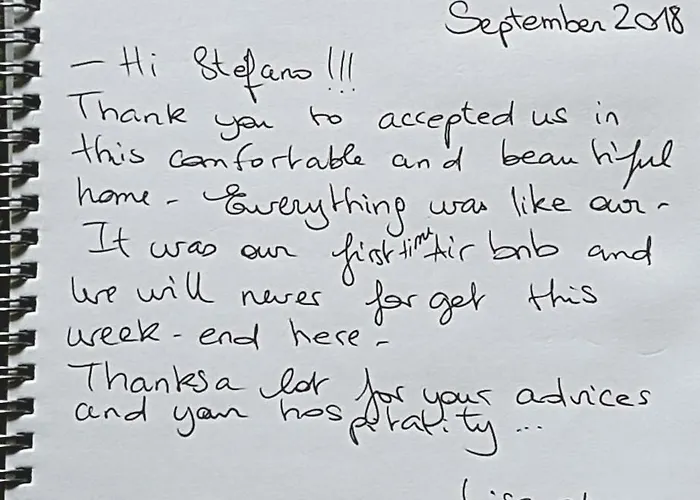 September 2018
— Hi Stefano !!!
Thank you to accepted us in
this comfortable and beautiful
home - Everything was like our -
It was our first time Air bnb and
we will never forget this
week-end here -
Thanks a lot for your advices
and your hospitality ...